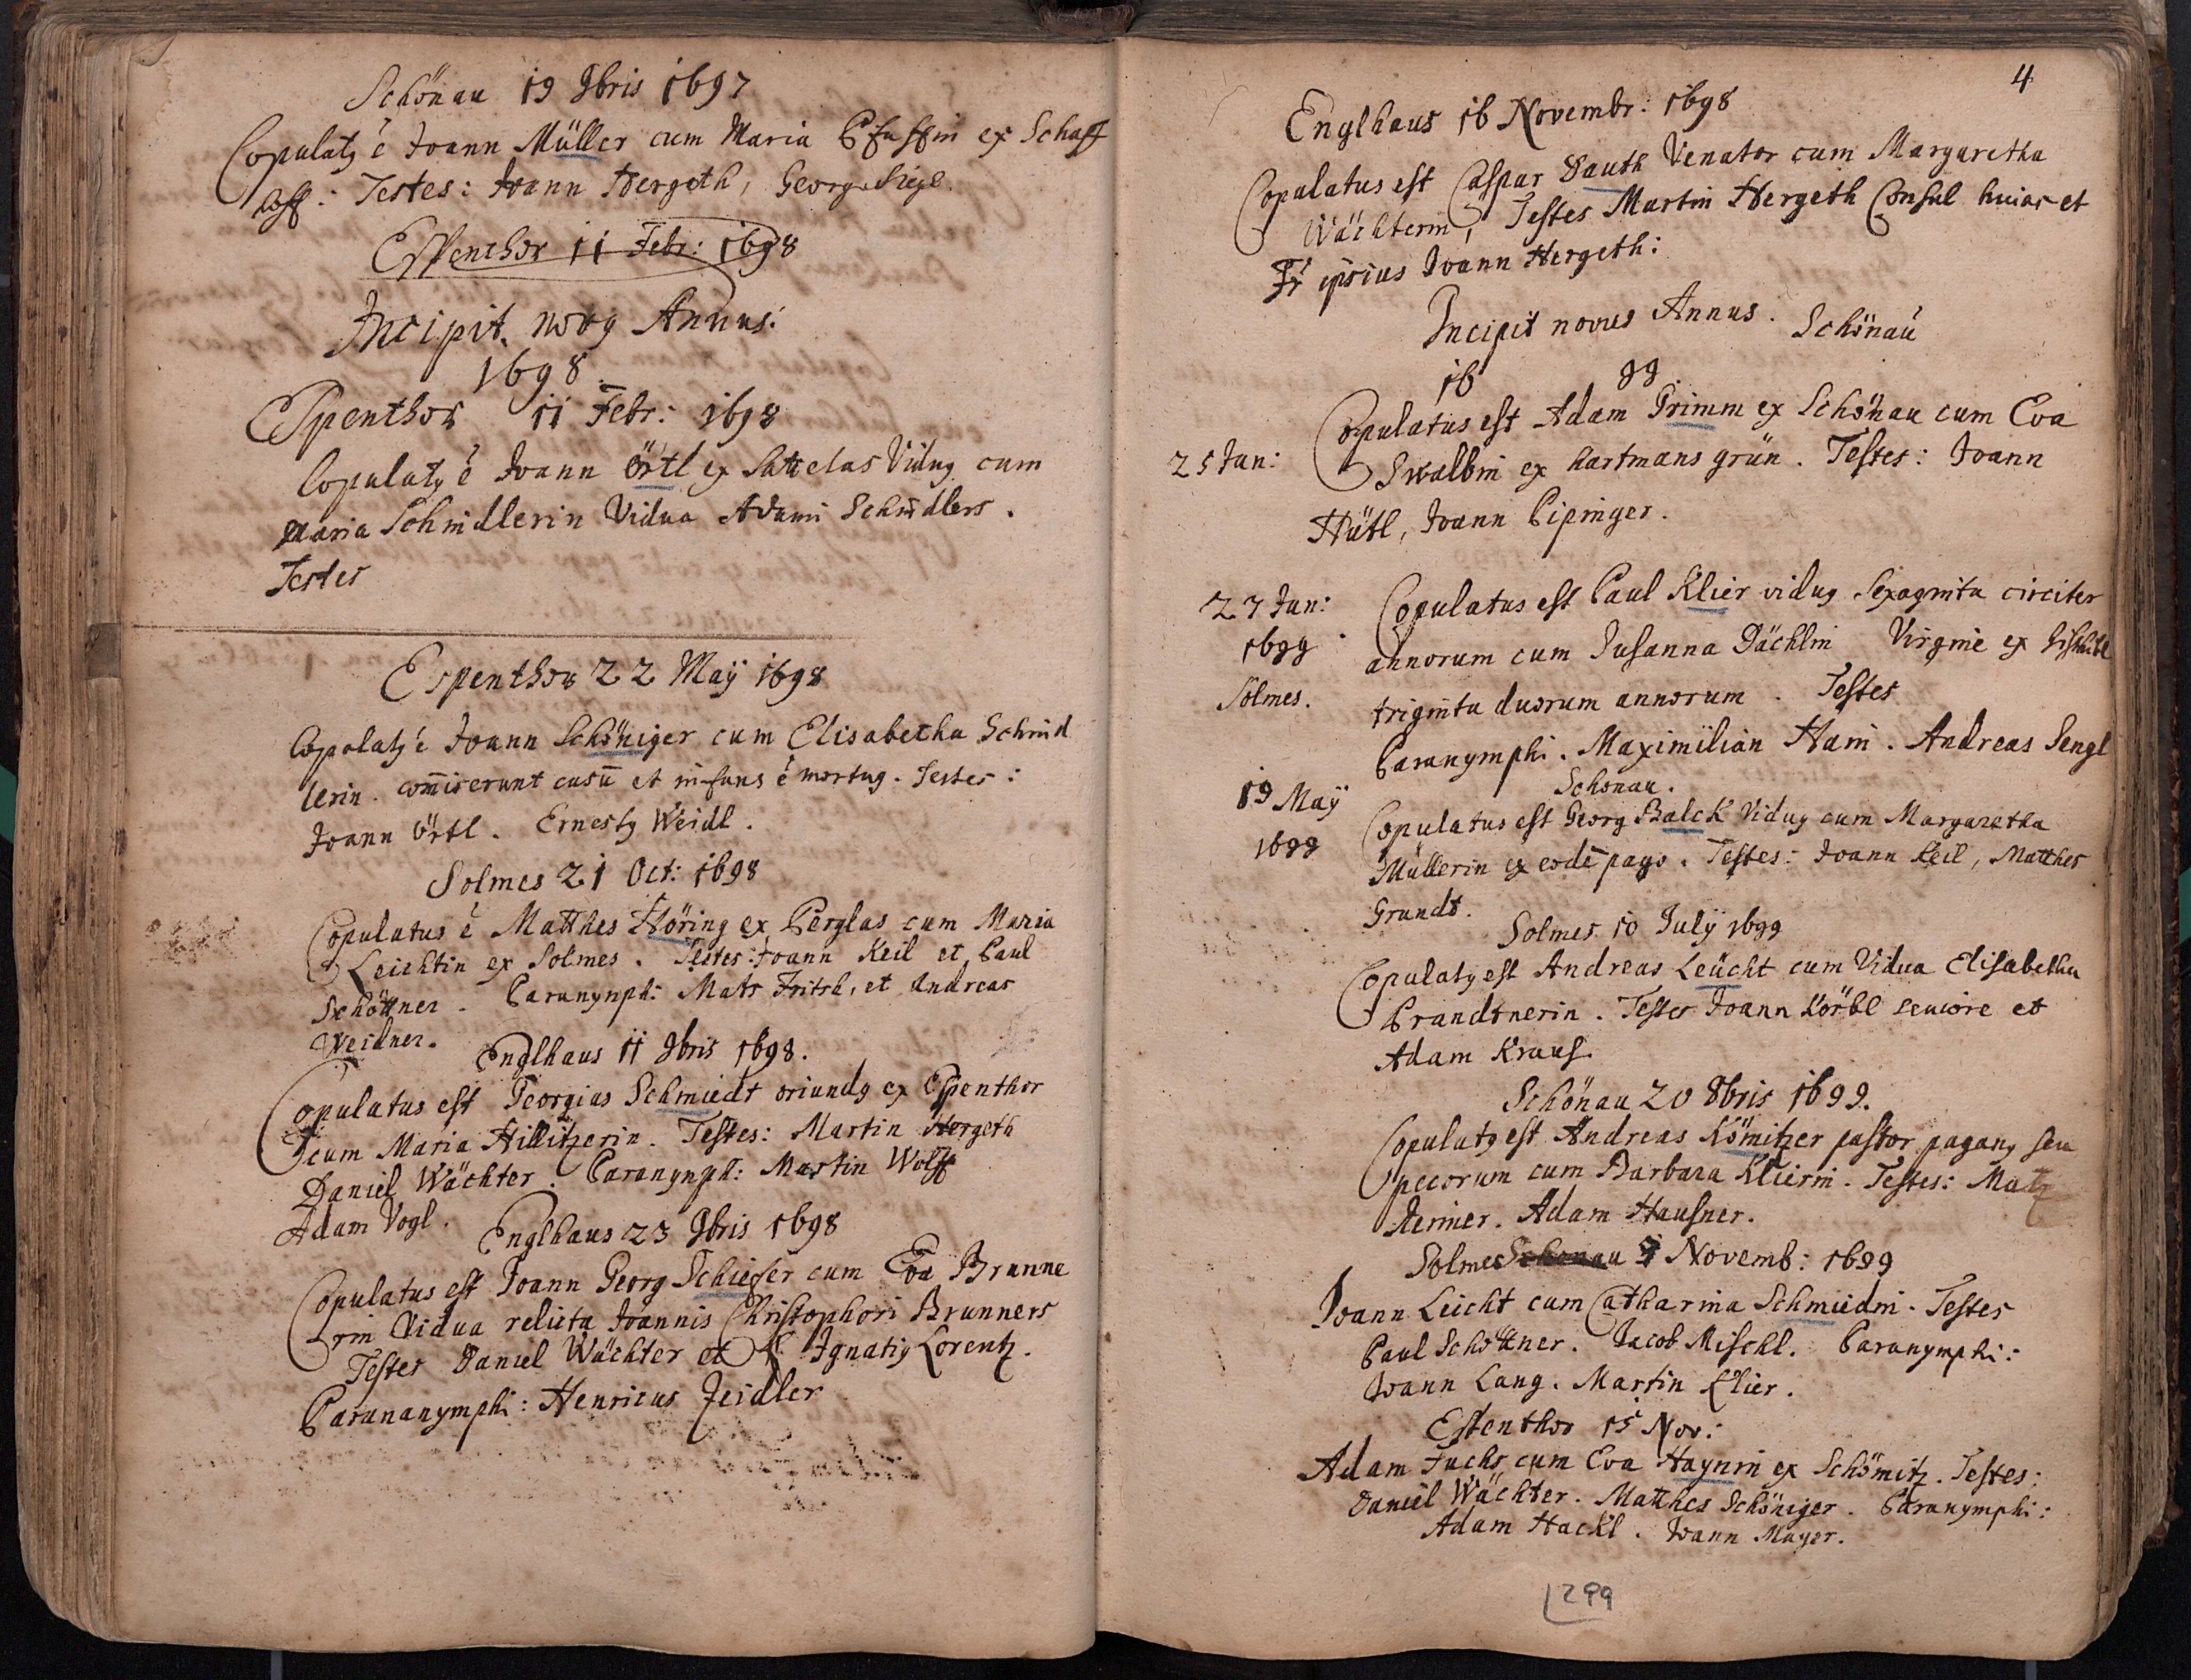 Schönau 19 9bris 1697
Copulatꝯ ẽ Joann Müller cum Maria ex Schaff
hoff: Testes: Joann Hergeth, Georg Siegl.
Espenthor 11 Febr: 1698
Incipit novꝯ Annus:
1698
Espenthor 11 Febr: 1698
Copulatꝯ ẽ Joann Örtl ex Satteles Viduꝯ cum
Maria Schmidlerin Vidua Adami Schmidlers.
Testes
Espenthor 22 Maÿ 1698
Copulatꝯ ẽ Joann Schöniger cum Elisabetha Schmid
lerin. com̄iserunt casū et infans ẽ mortuꝯ. Testes:
Joann Örtl. Ernestꝯ Weidl.
Solmes 21 Oct: 1698
Copulatus ẽ Matthes Höring ex Perglas cum Maria
Leichtin ex Solmes. Testes: Joann Keil et Paul
Schöttner. Paranynph: Mats Fritsch, et Andreas
Weidner.
Englhaus 11 9bris 1698.
Copulatus est Georgius Schmiedt oriundꝯ ex Espenthor
cum Maria Hillitzerin. Testes: Martin Hergeth
Daniel Wächter. Paranynph: Martin Wolff
Adam Vogl.
Englhaus 23 9bris 1698
Copulatus est Joann Georg Schiefer cum Eva Brunne
rin Vidua relicta Joannis Christophori Brunners
Testes Daniel Wächter et Ignatiꝯ Lorentz.
Parananymphi: Henricus Zeidler
4
Englhaus 16 Novembr: 1698
Copulatus est Caspar Sauth Venator cum Margaretha
Wächterin, Testes Martin Hergeth Consul huius et
Fr̃ ipsius Joann Hergeth:
Incipit novus Annus. Schönau
16 99
25 Jan: Copulatus est Adam Grimm ex Schönau cum Eva
Swalbin ex hartmans grün. Testes: Joann
Hütl, Joann Pipinger.
27 Jan: Copulatus est Paul Klier viduꝯ Sexaginta circiter
1699 annorum cum Susanna Dächlin Virgine ex
Solmes. triginta duorum annorum. Testes
Paranymphi. Maximilian Hani. Andreas Sengl
19 Maÿ Schönau.
1699 Copulatus est Georg Balck Viduꝯ cum Margaretha
Müllerin ex eodē pago. Testes: Joann Keil, Matthes
Grundt.
Solmes 10 Julÿ 1699
Copulatꝯ est Andreas Leücht cum Vidua Elisabetha
Brandtnerin. Testes Joann Körbl seniore et
Adam Kraus.
Schönau 20 8bris 1699.
Copulatꝯ est Andreas Kömitzer pastor paganꝯ seu
pecorum cum Barbara Klierin. Testes: Matz
Adam Hausner.
Solmes Schonau 7 Novemb: 1699
Joann Leicht cum Catharina Schmiedin. Testes
Paul Schöttner. Jacob Mischl. Paranymphi:
Joann Lang. Martin Klier.
Espenthor 15 Nov:
Adam Fuchs cum Eva Haynin ex Schömitz. Testes:
Daniel Wächter. Matthes Schöniger. Paranymphi:
Adam Hackl. Joann Mayer.
299